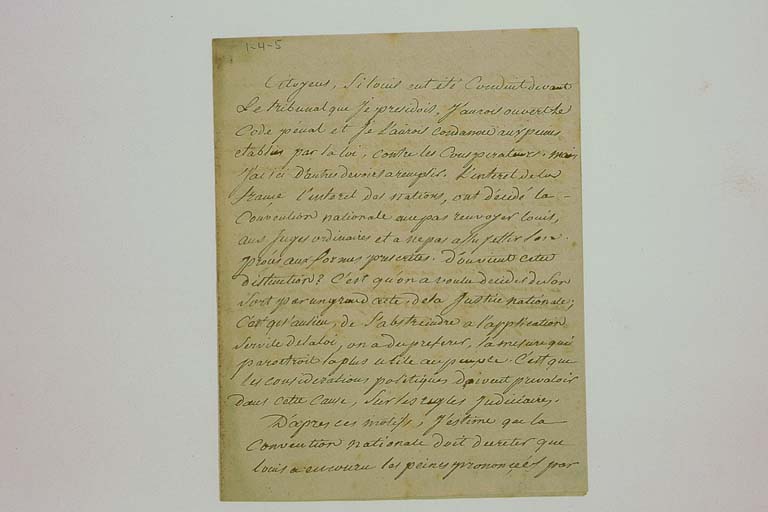 1-4-5
Citoyens, Si louis eut été Conduit devant
Le tribunal que Je presidois, J'aurois ouvert le
Code pénal et Je l'aurois condamné aux peines
etablies par la loi, contre les Conspirateurs. mais
J'ai ici D'autres devoirs a remplir. L'interet de la
france l'interet des nations, ont décidé la
Convention nationale a ne pas renvoyer louis,
aux Juges ordinaires et a ne pas assujettir son
procès aux formes prescrites. D'ou vient cette
distinction? C'est qu'on a voulu decider de Son
Sort par un grand acte, de la Justice nationale;
C'est qu'au lieu, de S'abstreindre a l'application
Servile de la loi, on a du preferer, la mesure qui
paroitroit la plus utile au peuple. C'est que
les considerations politiques doivent prevaloir
dans cette Cause, Sur les regles Judiciaires.
D'apres ces motifs, J'estime que la
Convention nationale doit decreter que
louis a encouru les peines prononcées par